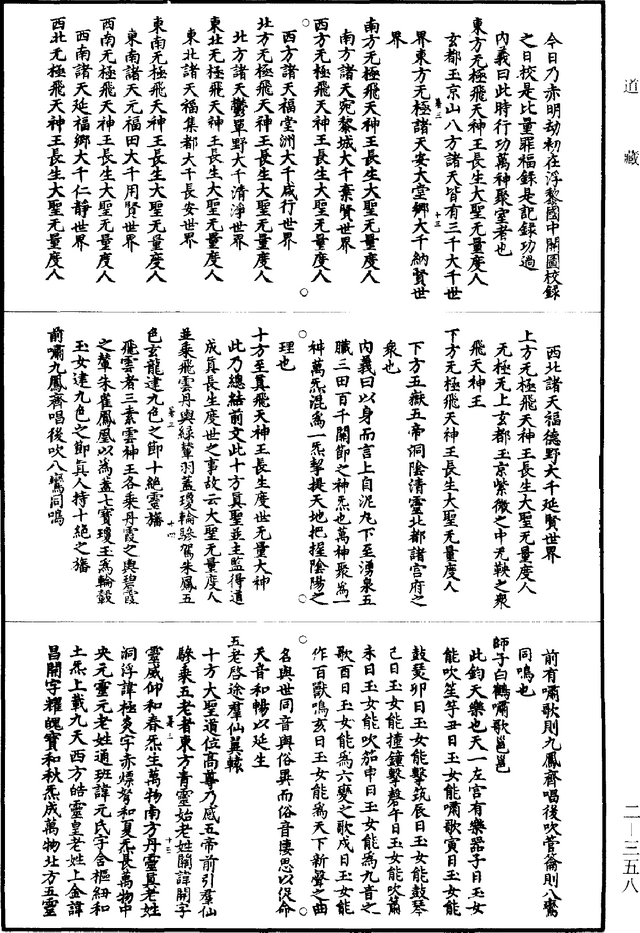 道藏
今日乃赤明劫初在浮黎國中開圖校錄
之日校是比量罪福錄是記錄功過
內義曰此時行功萬神聚室者也
東方无極飛天神王長生大聖无量度人
玄都玉京山八方諸天皆有三千大千世
界東方无極諸天安大堂鄉大千納賢世
界
南方无極飛天神王長生大聖无量度人
南方諸天宛黎城大千棄賢世界
西方无極飛天神王長生大聖无量度人
西方諸天福堂洲大千咸行世界
北方无極飛天神王長生大聖无量度人
北方諸天鬱單野大千清淨世界
東北无極飛天神王長生大聖无量度人
東北諸天福集都大千長安世界
東南无極飛天神王長生大聖无量度人
東南諸天元福田大千用賢世界
西南无極飛天神王長生大聖无量度人
西南諸天延福鄉大千仁靜世界
西北无極飛天神王長生大聖无量度人
西北諸天福德野大千延賢世界
上方无極飛天神王長生大聖无量度人
无極无上玄都玉京紫微之中无鞅之衆
飛天神王
下方无極飛天神王長生大聖无量度人
下方五嶽五帝洞陰清靈北都諸宮府之
衆也
內義曰以身而言上自泥丸下至湧泉五
臟三田百千關節之神炁也萬神聚爲一
神萬炁混爲一炁擎提天地把握陰陽之
理也
十方至真飛天神王長生度世无量大神
此乃總結前文此十方真聖並主監得道
成真長生度世之事故云大聖无量度人
並乘飛雲丹輿綠輦羽蓋瓊輪驂駕朱鳳五
色玄龍建九色之節十絕靈旛
飛雲者三素雲神王各乘丹霞之輿碧霞
之輦朱雀鳳凰以爲蓋七寶瓊玉爲輪轂
玉女建九色之節真人持十絕之旛
前嘯九鳳齊唱後吹八鸞同鳴
前有嘯歌則九鳳齊唱後吹菅籥則八鸞
同鳴也
師子白鶴嘯歌邕邕
此鈞天樂也天一左宮有樂器子日玉女
能吹笙竽丑日玉女能嘯歌寅日玉女能
鼓瑟卯日玉女能擊筑辰日玉女能鼓琴
己日玉女能撞鐘擊磬午日玉女能吹簫
未日玉女能吹笳申日玉女能爲九音之
歌酉日玉女能爲六變之歌戌日玉女能
作百獸鳴亥日玉女能爲天下新聲之曲
名與世同音與俗異而俗音悽思以促命
天音和暢以延生
五老啓途羣仙翼轅
十方大聖道位高尊乃感五帝前引羣仙
驂乘五老者東方青靈始老姓閻諱開字
靈威仰和春炁生萬物南方丹靈真老姓
洞浮諱極炎字赤熛弩和夏炁長萬物中
央元靈元老姓通班諱元氏字含樞紐和
土炁上載九天西方皓靈皇老姓上金諱
昌開字耀魄寶和秋炁成萬物北方五靈
二―三五八